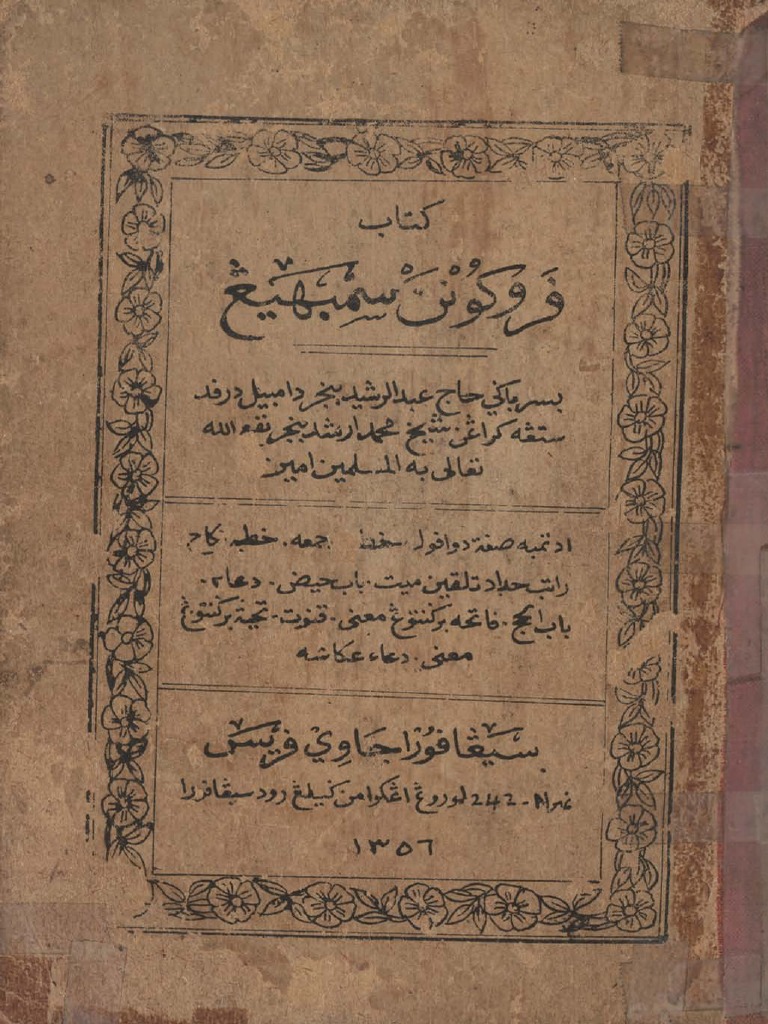 كتاب
فَروكوُنَنْ سِمْبَهيڠ
بسر باݢي حاج عبدالرشيد بنجر دامبيل درفد
ستڠه كراڠن شيخ محمد ارشد بنجر نفع الله
تعالى به المسلمين امين
ادتمبه صفة دوافوله جمعه. خطبه نكاح
راتب حداد تلقين ميت. باب حيض. دعاء٢.
باب الحج. فاتحه برݢنتوڠ معنى. قنوت. تحية برݢنتوڠ
معنى. دعاء عكاشه
سيڠافورا جاوي فريس
نمبر 242 لوروڠ اڠكوامن ݢيلڠ رود سيڠافورا
١٣٥٦